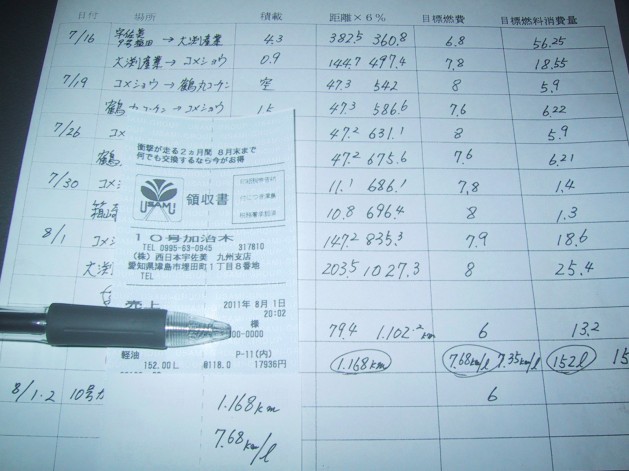 日付 場所 積載 距離×6% 目標燃費 目標燃料消費量
7/16 宇佐美 9号福田 → 大渕産業 4.3 382.5 360.8 6.8 56.25
大渕産業 → コメショウ 0.9 144.7 497.4 7.8 18.55
7/19 コメショウ → 鶴丸コーケン 空 47.3 542 8 5.9
鶴丸コーケン → コメショウ 1.5 47.3 586.6 7.6 6.22
7/26 コメ 47.2 631.1 8 5.9
鶴 47.2 675.6 7.6 6.21
7/30 コメシ 11.1 686.1 7.8 1.4
箱崎 10.8 696.4 8 1.3
8/1 コメシ 147.2 835.3 7.9 18.6
大渕 203.5 1027.3 8 25.4
79.4 1.102.2km 6 13.2
1.168km 7.68km/l 7.35km/l 152l 15
8/1.2 10号カ 6
衝撃が走る2ヵ月間 8月末まで
何でも交換するなら今がお得
USAMI
領収書
10号加治木
TEL 0995-63-0945 317810
(株)西日本宇佐美 九州支店
愛知県津島市埋田町1丁目8番地
TEL
売上 2011年 8月 1日
20:02
様
00-0000
軽油 P-11(内)
152.00 L @118.0 17936円
1.168km
7.68km/l